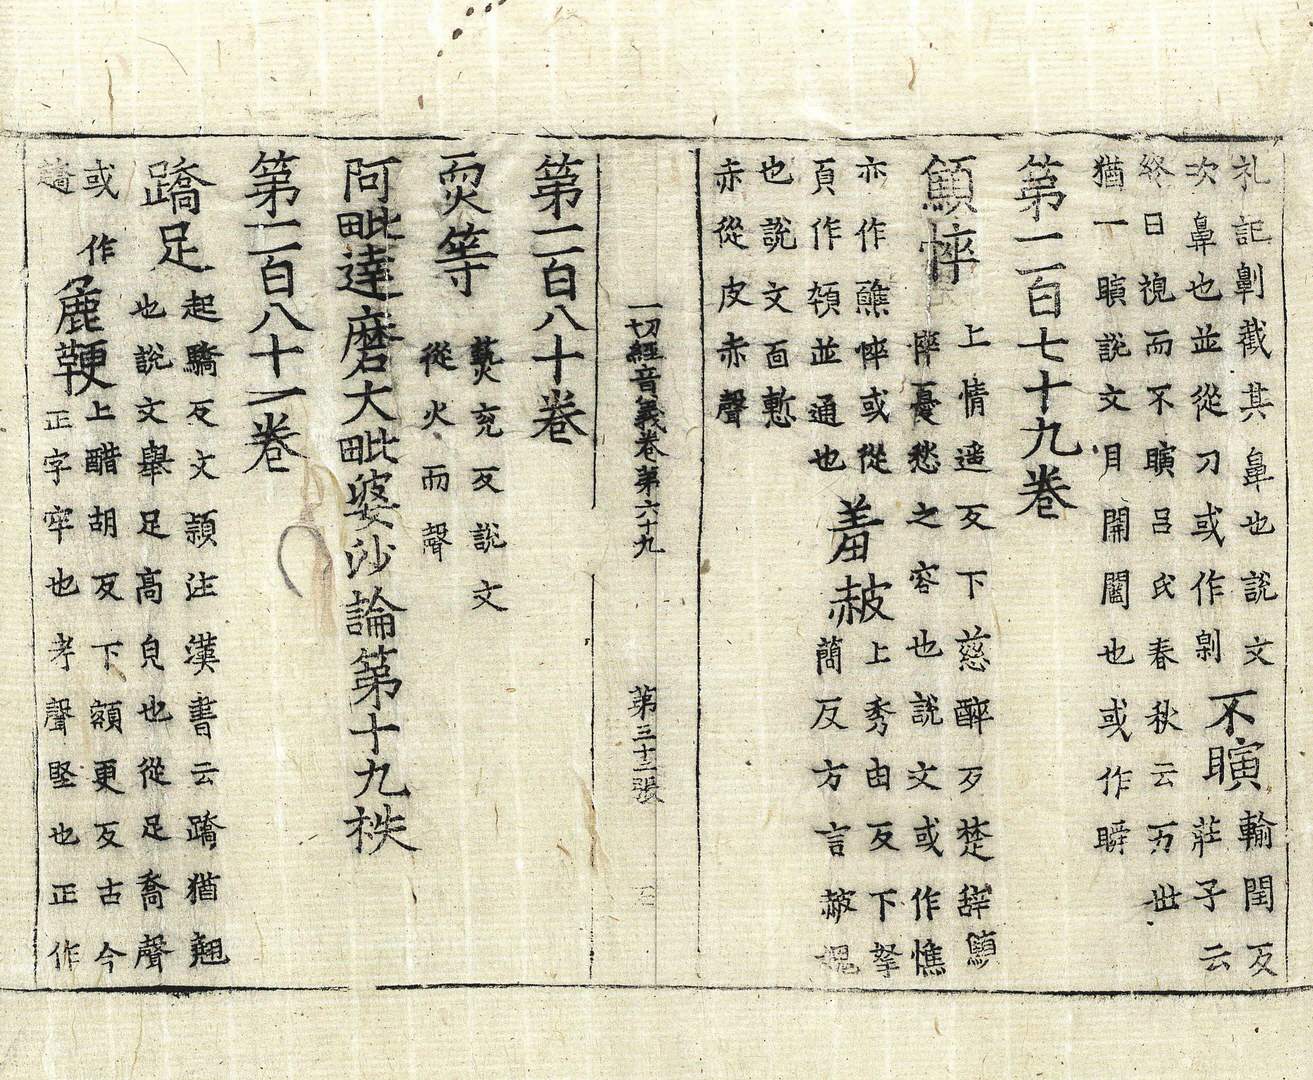 礼記劓截其鼻也說文
次鼻也並從刀或作剠
不瞚
輸閏反
莊子云
終日視而不瞚呂氏春秋云万世
猶一瞚說文目開闔也或作瞬
第一百七十九卷
顦悴
上情遥反下慈醉反楚辞顦
悴憂愁之容也說文或作憔
亦作醮悴或從
頁作顇並通也
羞赧
上秀由反下拏
蕳反方言赧愧
也說文面慙
赤從皮赤聲
一切經音義卷第六十九 第三十三張
第一百八十卷
耎等
蓺兖反說文
從火而聲
阿毗達磨大毗婆沙論第十九袟
第一百八十一卷
蹻足
起驕反文頴注漢書云蹻猶翹
也說文舉足高皃也從足喬聲
或作
麁鞕
上醋胡反下額更反古今
正字牢也考聲堅也正作